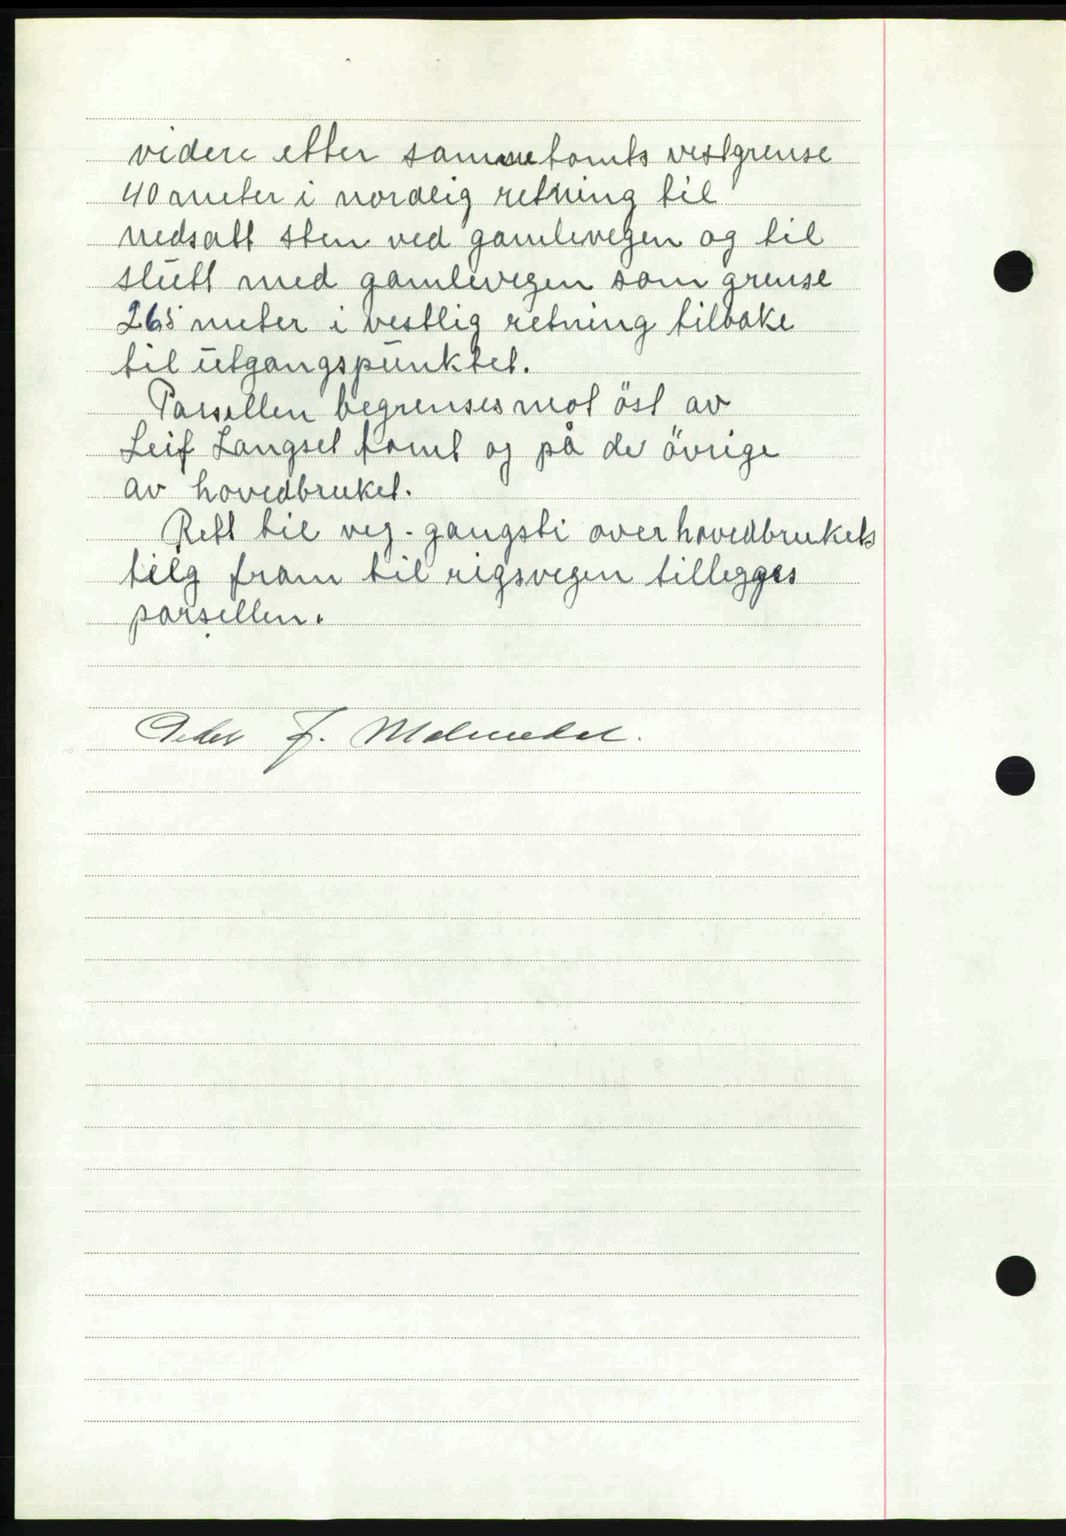 videre etter samme tomts vestgrense
40 meter i nordlig retning til
nedsatt sten ved gamlevegen og til
slütt med gamlevegen som grense
26,5 meter i vestlig retning tilbake
til ütgangspünktet.
Parsellen begrenses mot öst av
Leif Langset tomt og på de övrige
av hovedbruket.
Rett til veg - gangsti over hovedbrukets
teig fram til rigsvegen tillegges
parsellen.
Peder J. Malmedal.